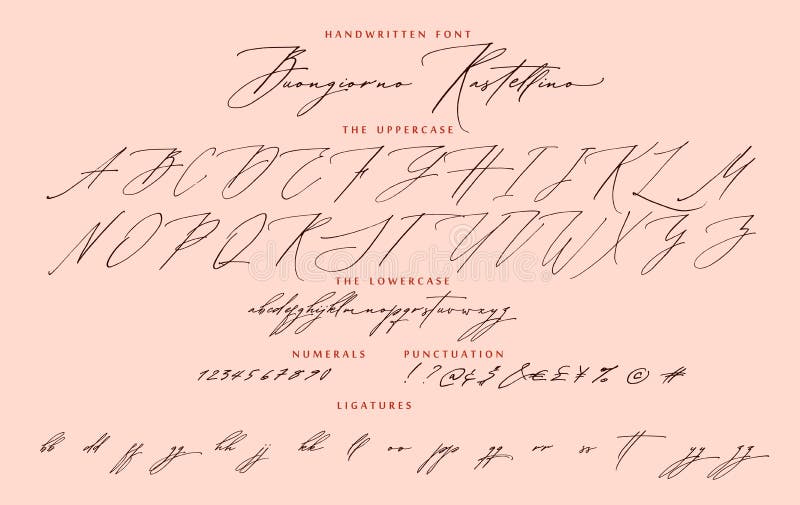 HANDWRITTEN FONT
Buongiorno Rastellino
THE UPPERCASE
A B C D E F G H I J K L M
N O P Q R S T U V W X Y Z
THE LOWERCASE
abcdefghijklmnopqrstuvwxyz
NUMERALS PUNCTUATION
1234567890 !?@¢$&€£¥%©#
LIGATURES
bb dd ff gg hh jj kk ll oo pp qq rr ss tt yy zz